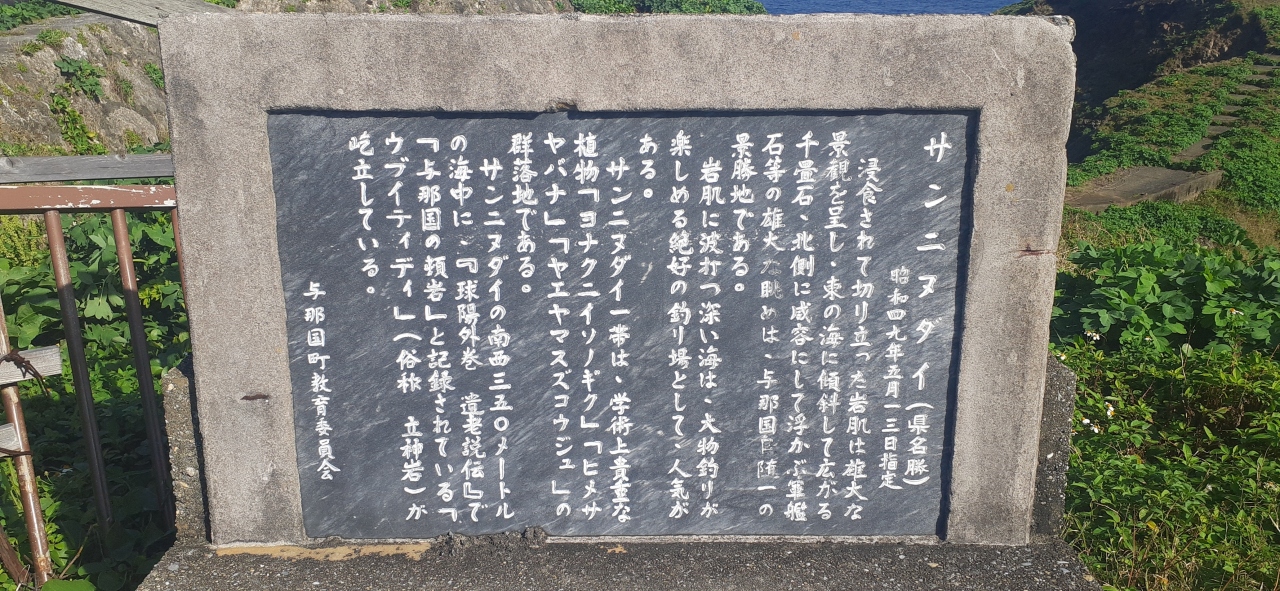 サンニヌダイ(県名勝)
昭和四九年五月一三日指定
浸食されて切り立った岩肌は雄大な
景観を呈し、東の海に傾斜して広がる
千畳石、北側に威容にして浮かぶ軍艦
石等の雄大な眺めは、与那国随一の
景勝地である。
岩肌に波打つ深い海は、大物釣りが
楽しめる絶好の釣り場として、人気が
ある。
サンニヌダイ一帯は、学術上貴重な
植物「ヨナクニイソノギク」「ヒメサ
ヤバナ」「ヤエヤマスズコウジュ」の
群落地である。
サンニヌダイの南西三五〇メートル
の海中に、『球陽外巻 遺老説伝』で
「与那国の頓岩」と記録されている「
ウブイティディ」(俗称 立神岩)が
屹立している。
与那国町教育委員会